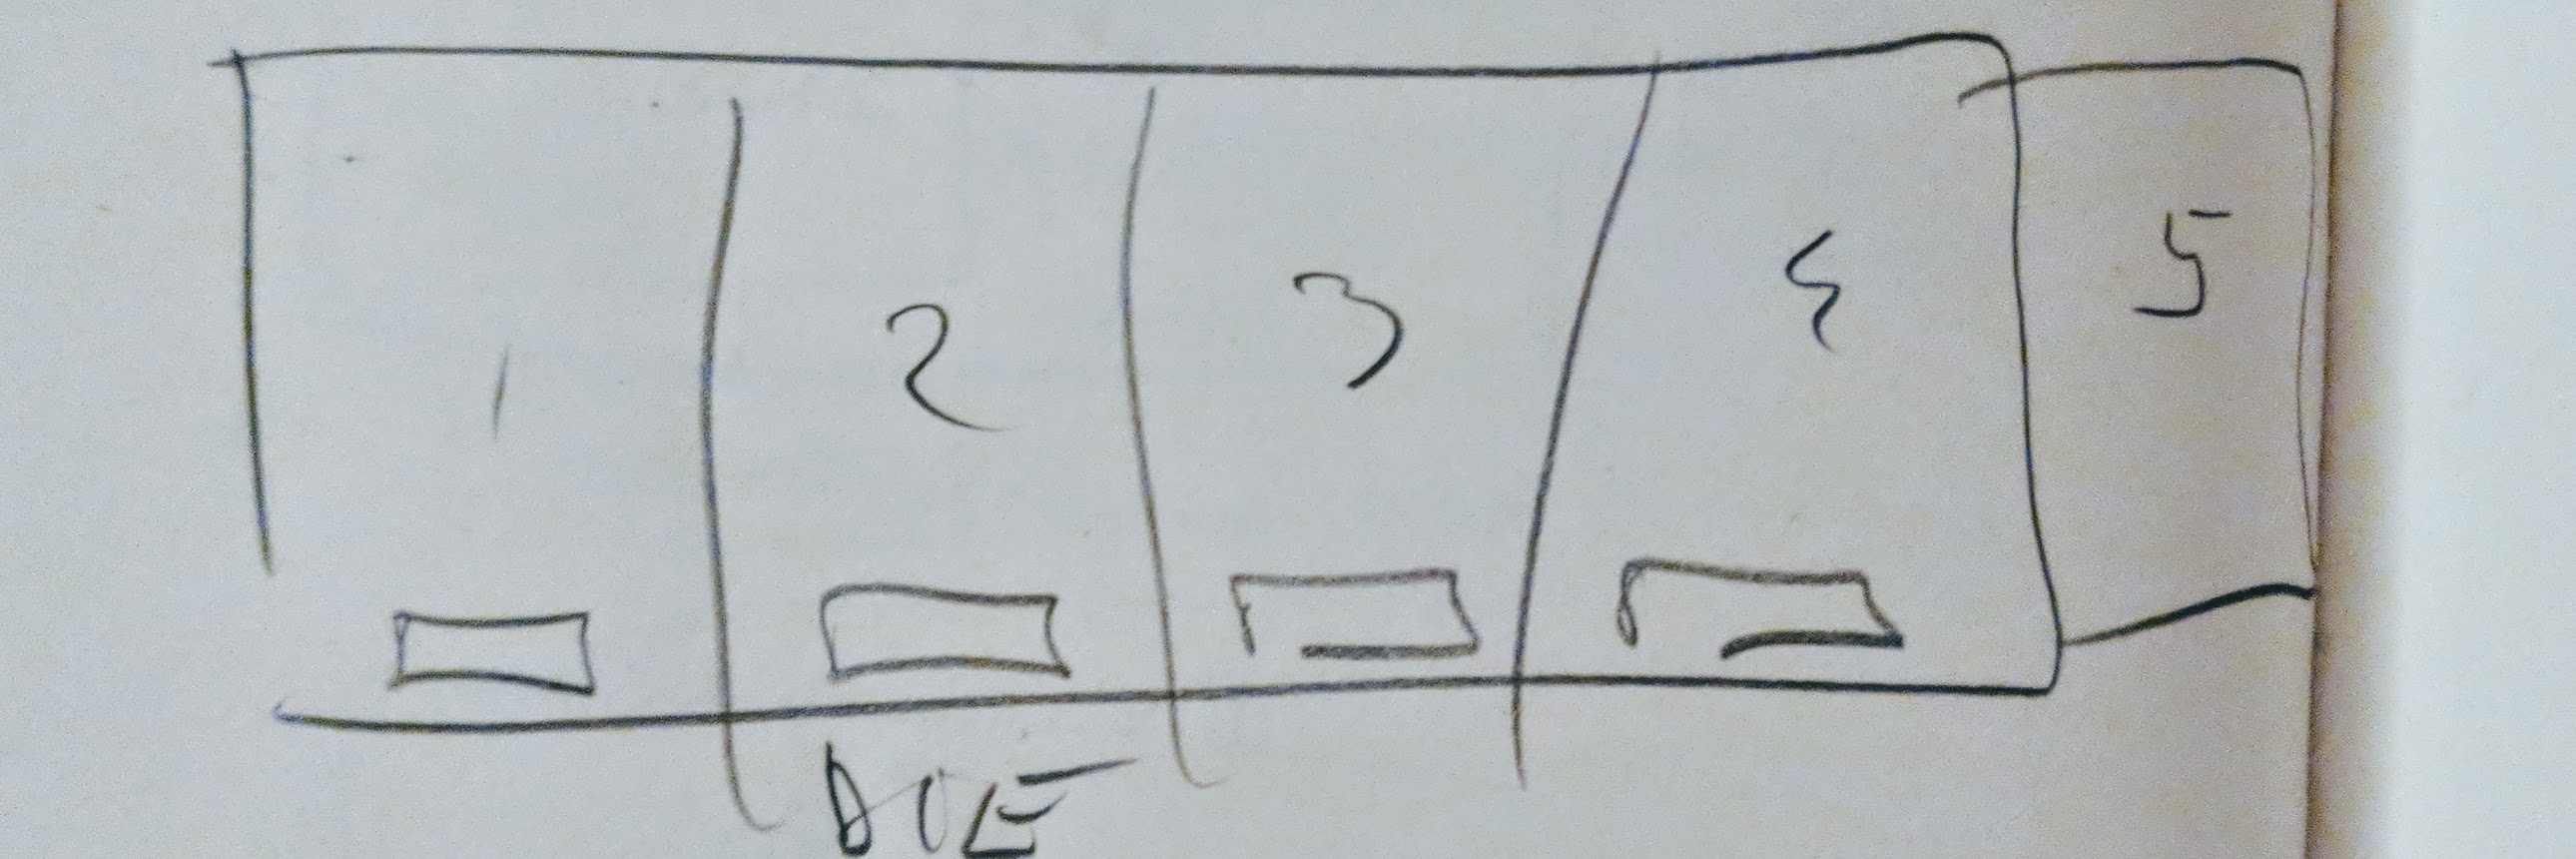 1 2 3 4 5
DUE